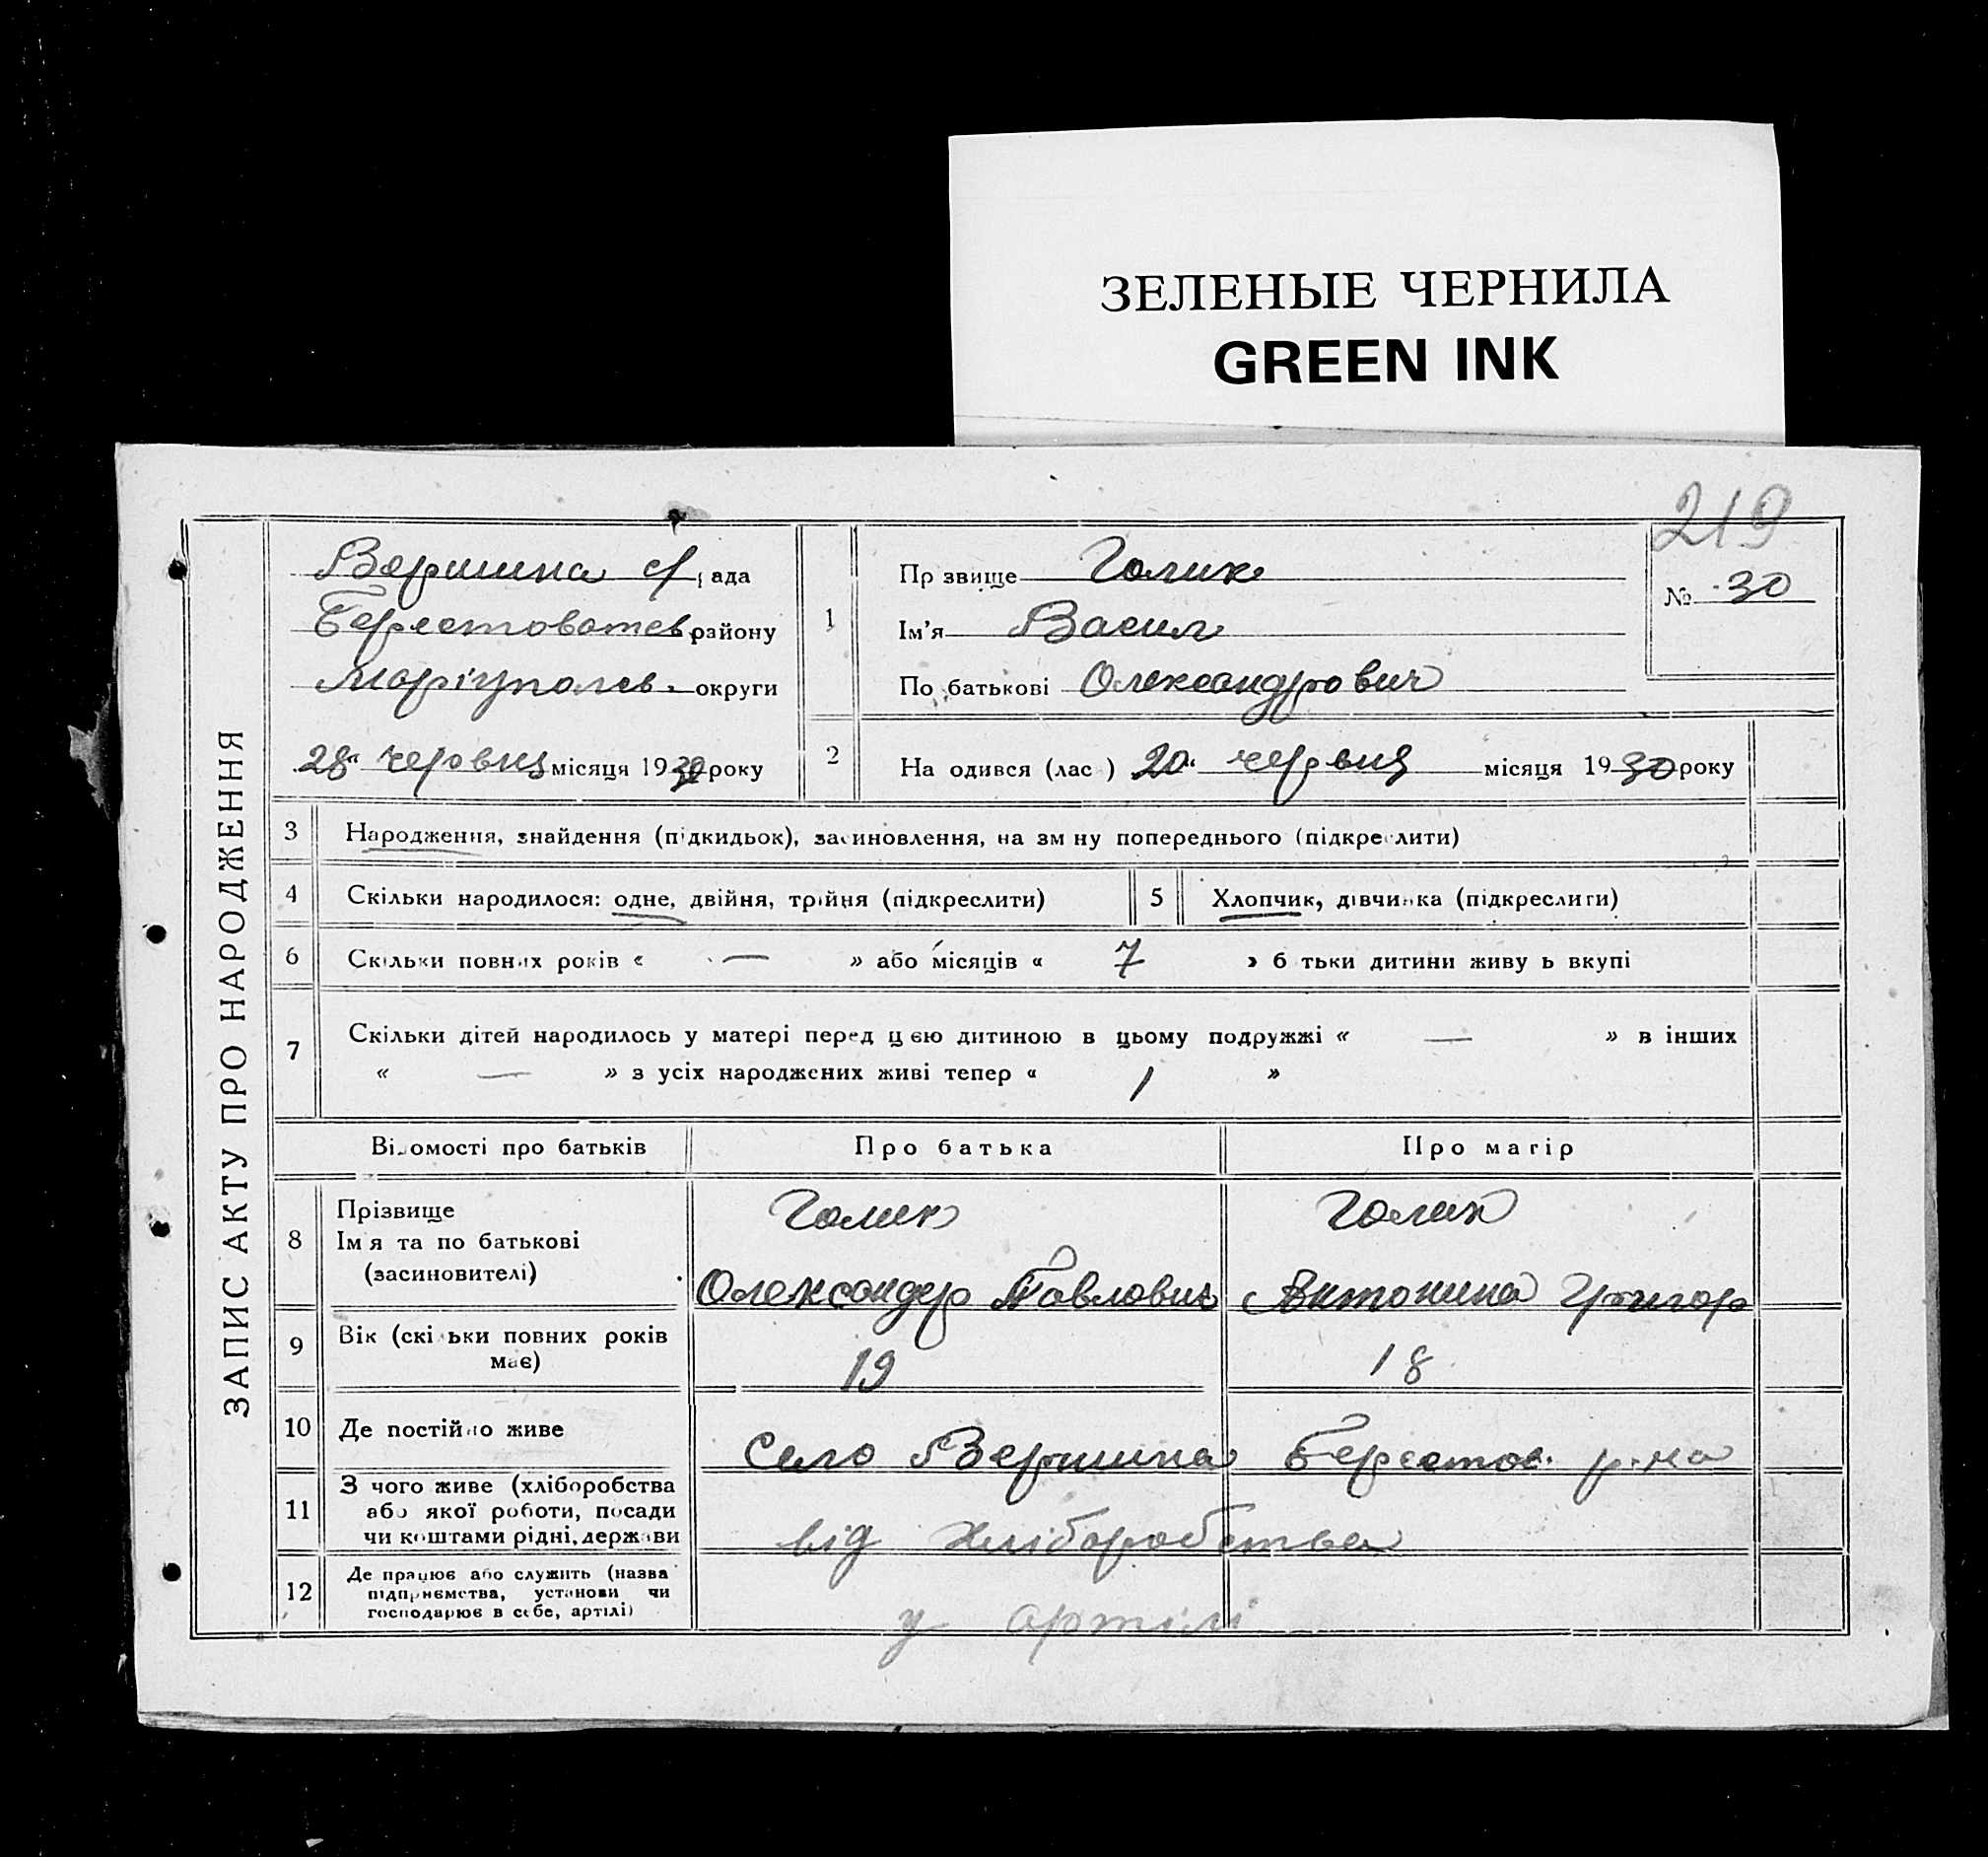 ЗЕЛЕНЫЕ ЧЕРНИЛА
GREEN INK
219
ЗАПИС АКТУ ПРО НАРОДЖЕННЯ
Вершина с/рада
Берестоватев району
Маріуполев. округи
28 червня місяця 1930 року
1
Пр звище Голик
Ім'я Васил
По батькові Олександрович
№ 30
2
На одився (лас ) 20 червня місяця 1930 року
3 Народження, знайдення (підкидьок), засиновлення, на зм ну попереднього (підкреслити)
4 Скільки народилося: одне, двійня, трійня (підкреслити)
5 Хлопчик, дівчинка (підкреслити)
6 Скільки повних років « — » або місяців « 7 » б тьки дитини живу ь вкупі
7 Скільки дітей народилось у матері перед цією дитиною в цьому подружжі « — » в інших
« — » з усіх народжених живі тепер « 1 »
Відомості про батьків Про батька Про матір
8 Прізвище
Ім я та по батькові
(засиновителі)
Голик
Олександер Павлович
Голик
Антонина Григор
9 Вік (скі ьки повних років
має)
19 18
10 Де постійно живе Село Вершина Берестов. р-на
11 З чого живе (хліборобства
або якої роботи, посади
чи коштами рідні, держави
від хліборобства
12 Де працює або служить (назва
підприємства, установи чи
господарює в себе, артілі)
у артілі